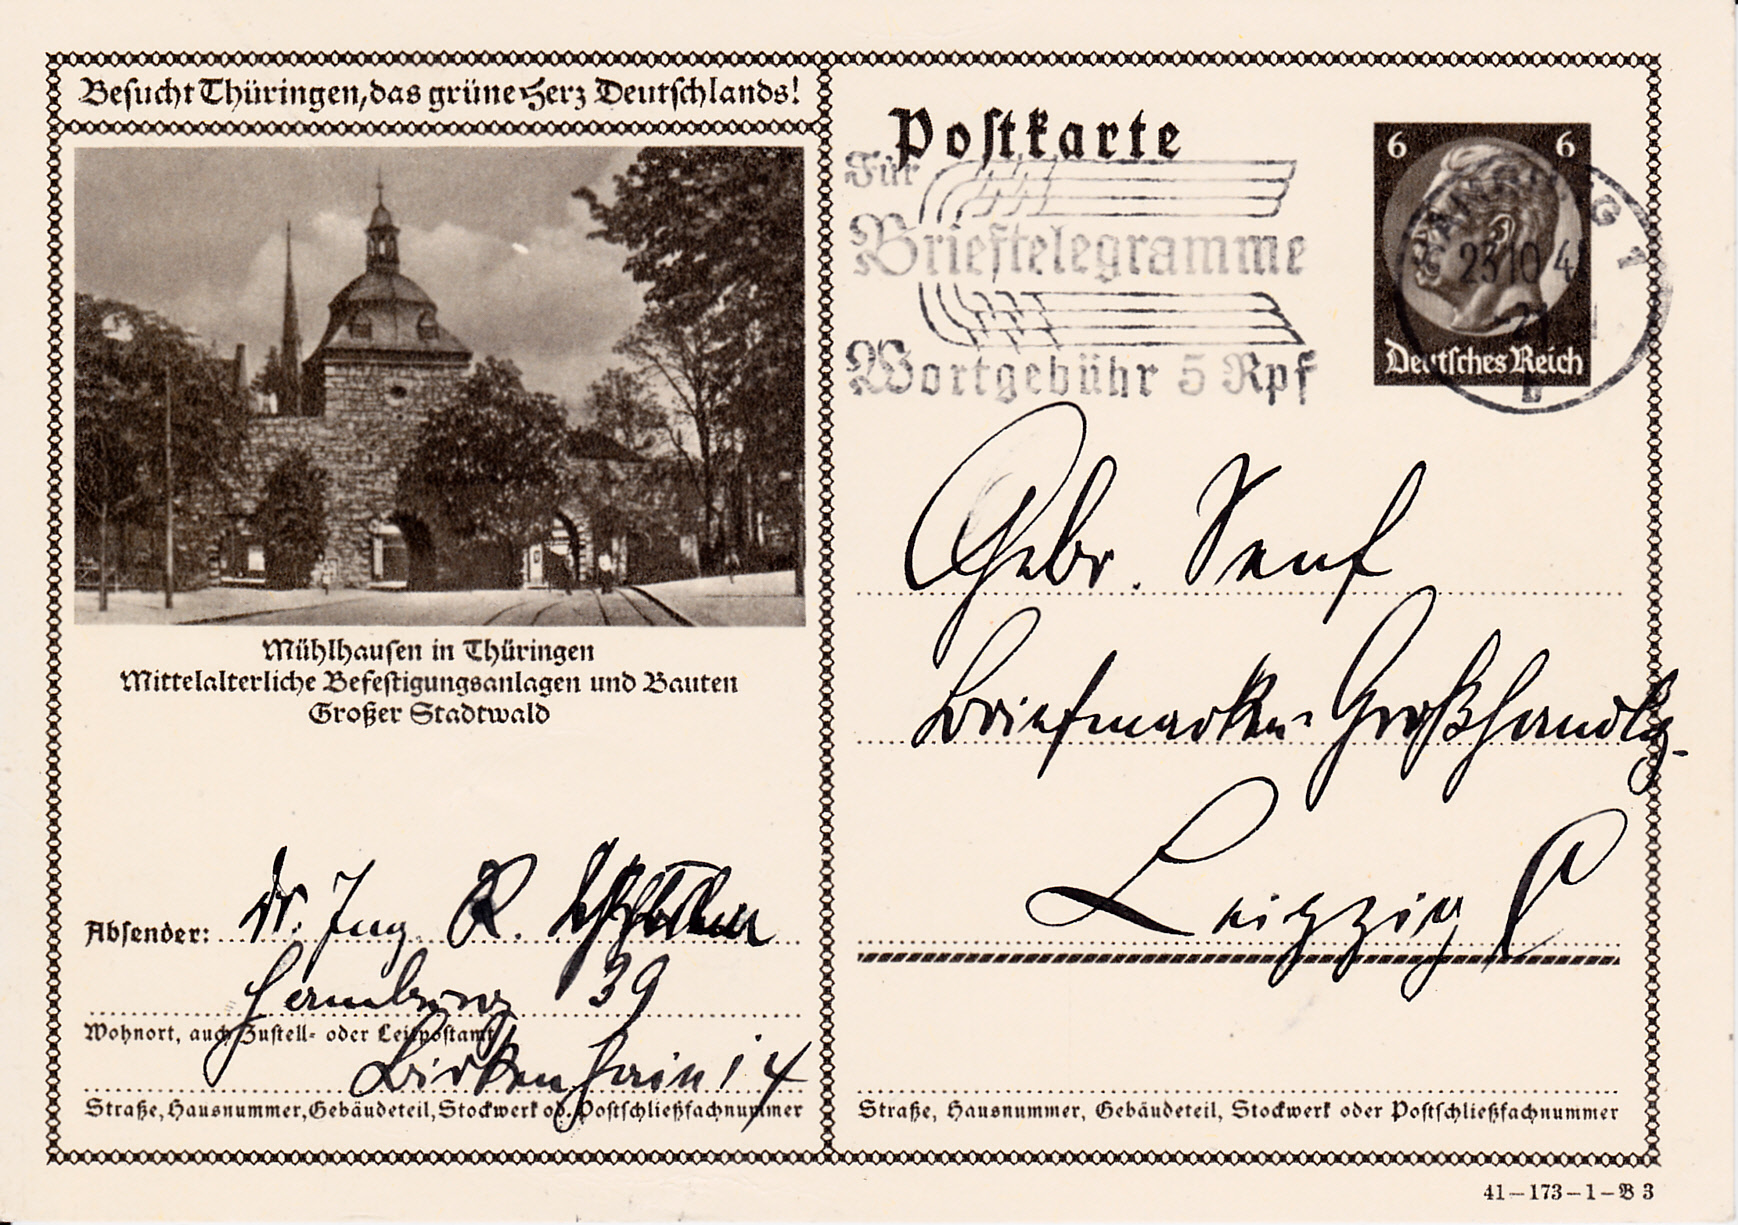 Besucht Thüringen, das grüne Herz Deutschlands!
Mühlhausen in Thüringen
Mittelalterliche Befestigungsanlagen und Bauten
Großer Stadtwald
Absender: Dr. Ing. R.
Hamburg 39
Wohnort, auch Zustell- oder Leitpostamt
Birkenhain 4
Straße, Hausnummer, Gebäudeteil, Stockwerk od. Postschließfachnummer
Postkarte
Für
Brieftelegramme
Wortgebühr 5 Rpf
6 6
Deutsches Reich
HAMBURG 1
23.10.4
Gebr. Senf
Briefmarken-Großhandlg.
Leipzig C
Straße, Hausnummer, Gebäudeteil, Stockwerk oder Postschließfachnummer
41–173–1–B 3